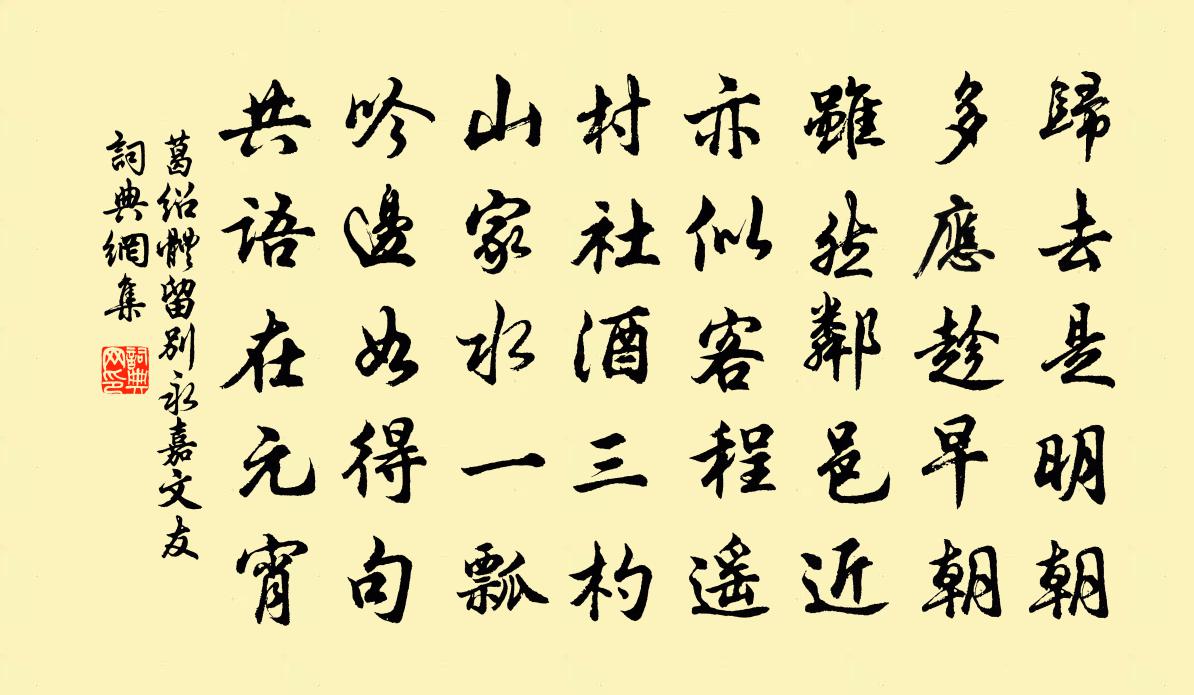 歸去是明朝
多應趁早朝
雖然鄰邑近
亦似客程遥
村社酒三杓
山家水一瓢
吟邊如得句
共語在元宵
葛绍體留別永嘉文友
詞典網集
詞典網印